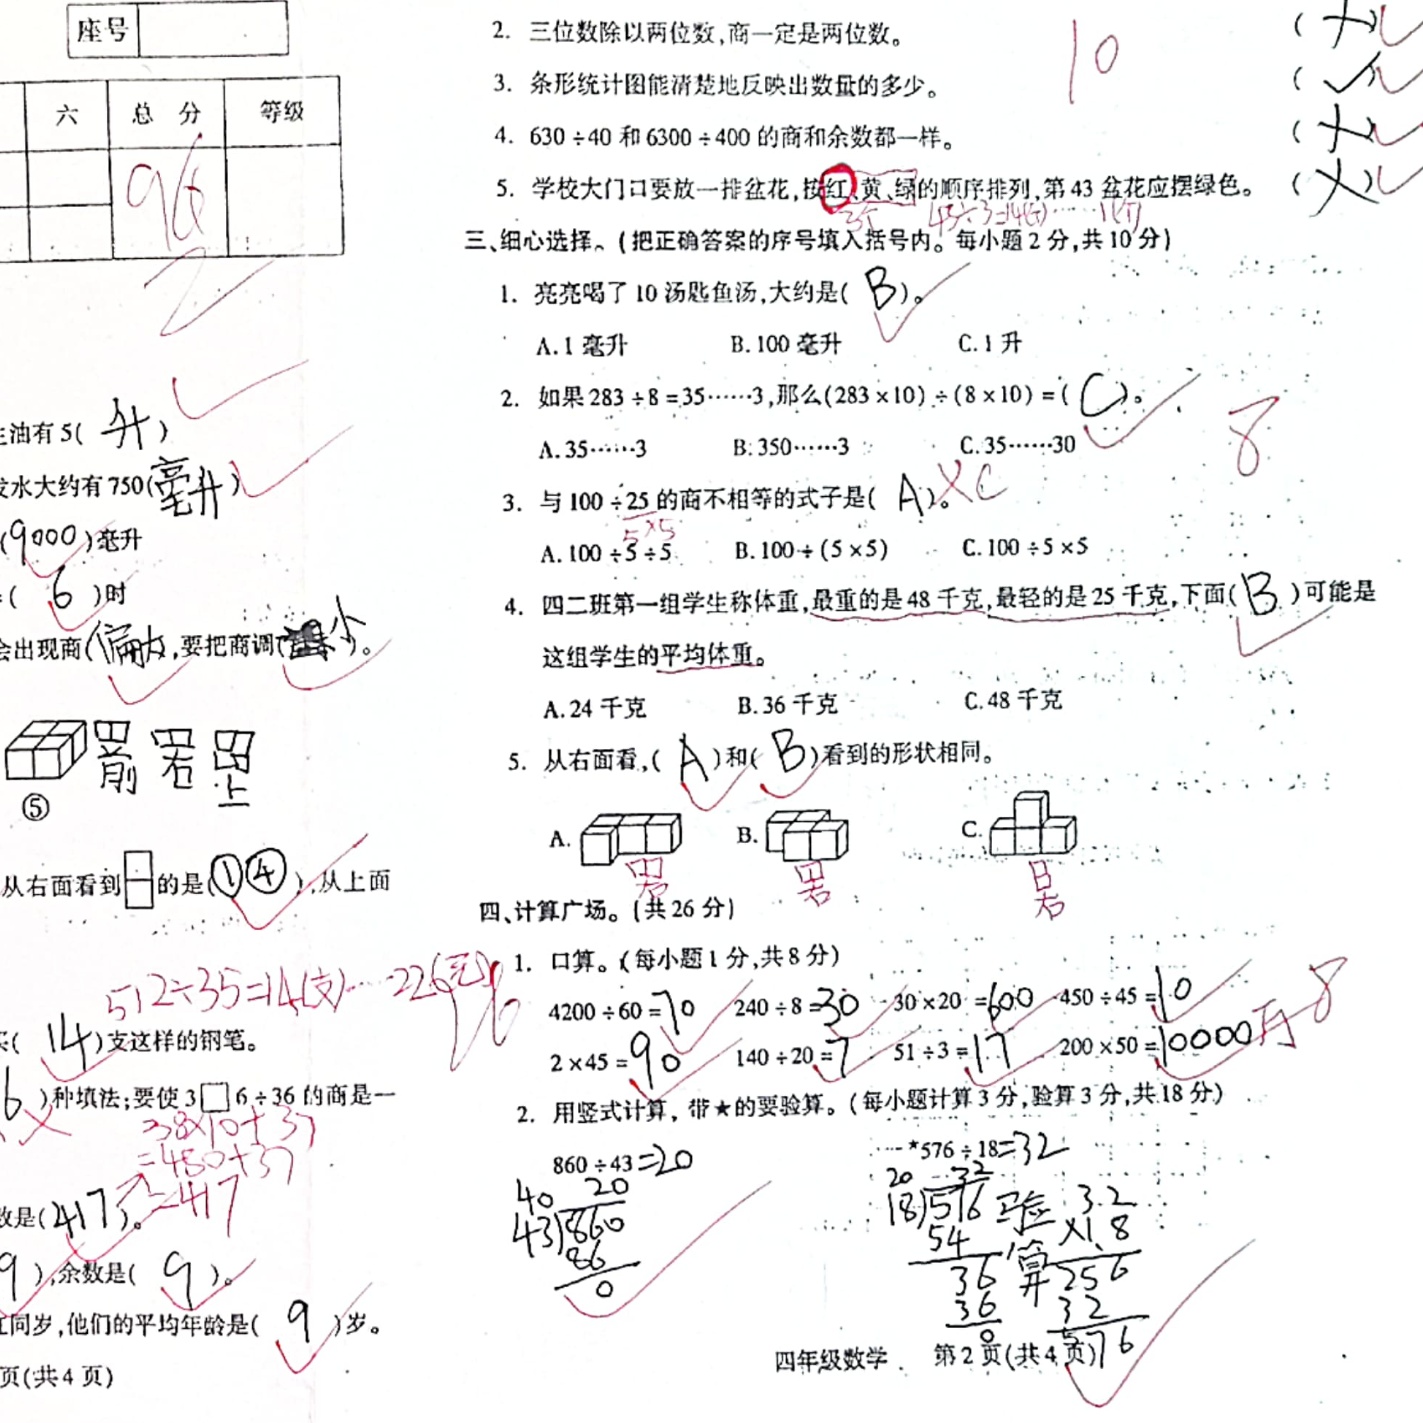 座号
六 总分 等级
96
生油有5(升)
发水大约有750(毫升)
(9000)毫升
=(6)时
会出现商(偏大),要把商调(小)。
前 右 上
⑤
从右面看到 的是(①④),从上面
512÷35=14(支)……22(元)
买(14)支这样的钢笔。
6)种填法;要使3□6÷36的商是一
=38×10+37
=480+37
=417
数是(417)。
9),余数是(9)。
红同岁,他们的平均年龄是(9)岁。
页(共4页)
2. 三位数除以两位数,商一定是两位数。 (×)
10
3. 条形统计图能清楚地反映出数量的多少。 (✓)
4. 630÷40和6300÷400的商和余数都一样。 (×)
5. 学校大门口要放一排盆花,按红、黄、绿的顺序排列,第43盆花应摆绿色。 (×)
3个 43÷3=14(个)……1(个)
三、细心选择。(把正确答案的序号填入括号内。每小题2分,共10分)
1. 亮亮喝了10汤匙鱼汤,大约是(B)。
A.1毫升 B.100毫升 C.1升
2. 如果283÷8=35……3,那么(283×10)÷(8×10)=(C)。
A.35……3 B.350……3 C.35……30
8
3. 与100÷25的商不相等的式子是(A)。×C
5×5
A.100÷5÷5 B.100÷(5×5) C.100÷5×5
4. 四二班第一组学生称体重,最重的是48千克,最轻的是25千克,下面(B)可能是
这组学生的平均体重。
A.24千克 B.36千克 C.48千克
5. 从右面看,(A)和(B)看到的形状相同。
A. B. C.
右 右 右
四、计算广场。(共26分)
1. 口算。(每小题1分,共8分)
4200÷60=70 240÷8=30 30×20=600 450÷45=10
2×45=90 140÷20=7 51÷3=17 200×50=10000
8
2. 用竖式计算,带★的要验算。(每小题计算3分,验算3分,共18分)
860÷43=20 ★576÷18=32
40 20 20 32
43)860 18)576 验算 32
86 54 ×18
0 36 256
36 32
0 576
四年级数学 第2页(共4页)